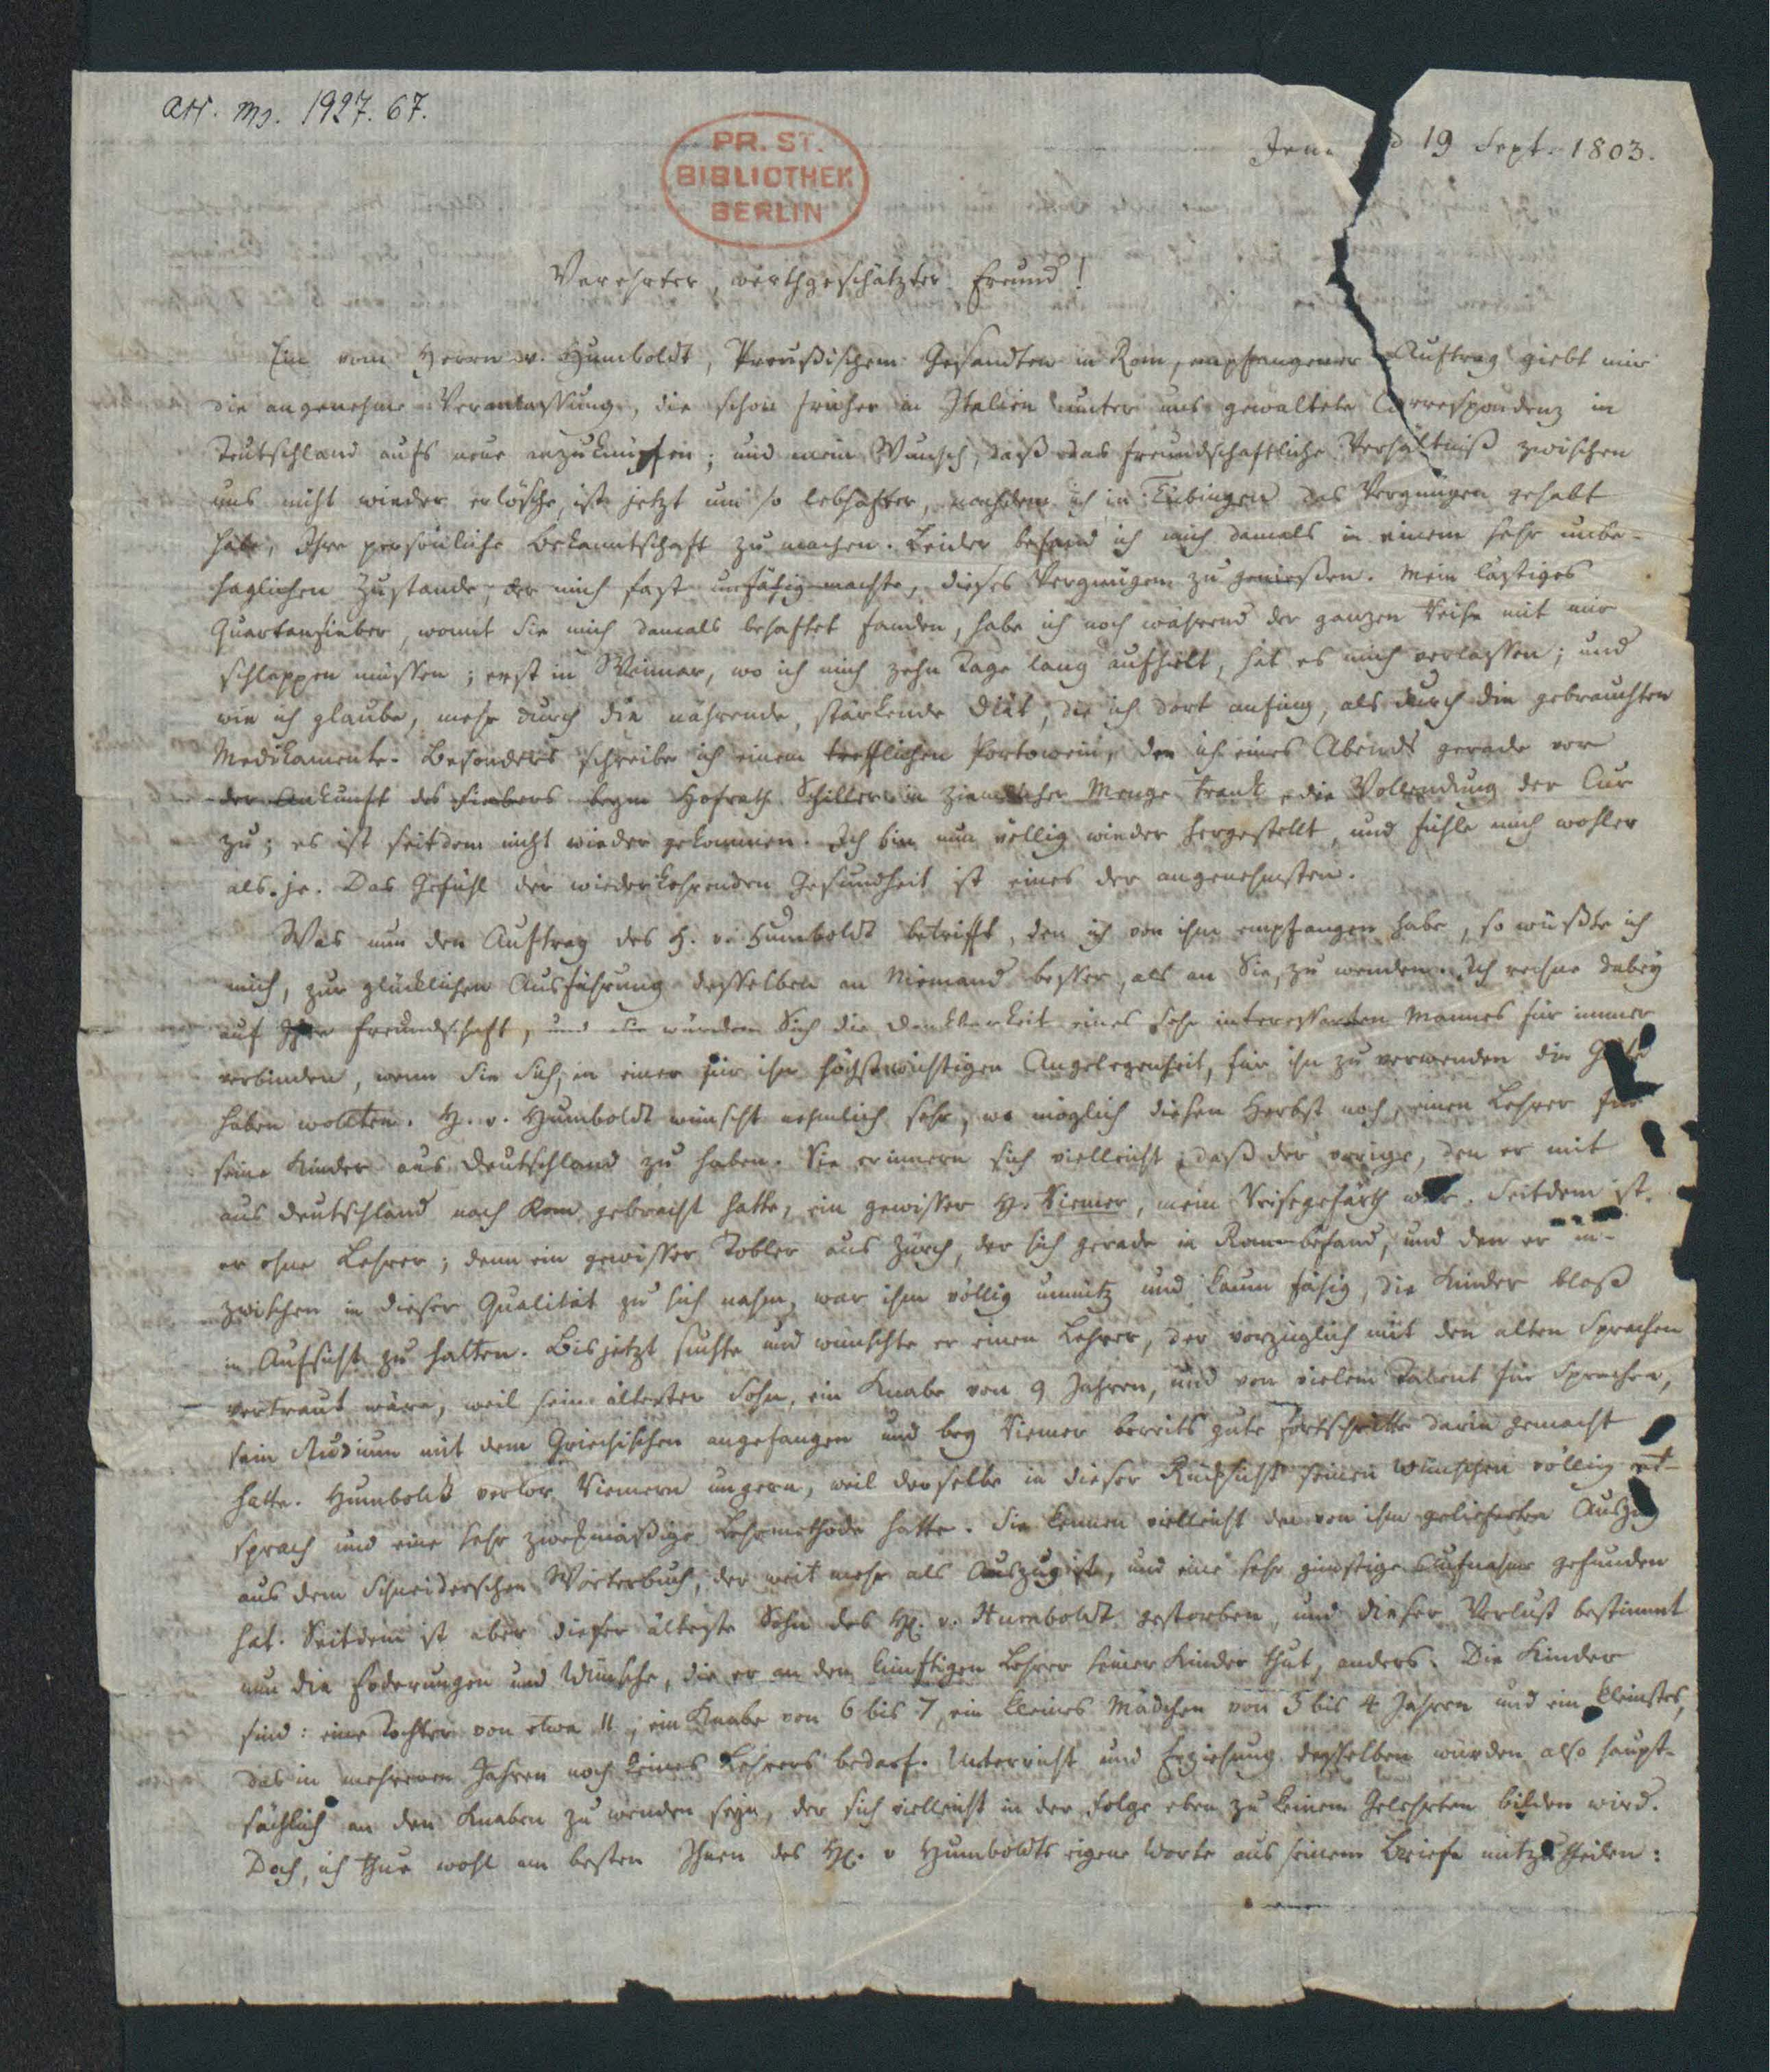 acc. ms. 1927. 67.
PR. ST.
BIBLIOTHEK
BERLIN
Jena d 19 Sept. 1803.
Verehrter, werthgeschätzter Freund!
Ein vom Herrn v. Humboldt, Preußischem Gesandten in Rom, empfangener Auftrag giebt mir
die angenehme Veranlassung, die schon früher in Italien unter uns gewaltete Correspondenz in
Teutschland aufs neue anzuknüpfen; und mein Wunsch, daß das freundschaftliche Verhältniß zwischen
uns nicht wieder erlösche, ist jetzt um so lebhafter, nachdem ich in Tübingen das Vergnügen gehabt
habe, Ihre persönliche Bekanntschaft zu machen. Leider befand ich mich damals in einem sehr unbe-
haglichen Zustande, der mich fast unfähig machte, dieses Vergnügen zu genießen. Mein lästiges
Quartanfieber, womit Sie mich damals behaftet fanden, habe ich noch während der ganzen Reise mit mir
schleppen müssen; erst in Weimar, wo ich mich zehn Tage lang aufhielt, hat es mich verlassen; und
wie ich glaube, mehr durch die nährende, stärkende Diät, die ich dort anfing, als durch die gebrauchten
Medikamente. Besonders schreibe ich einem trefflichen Portowein, den ich eines Abends gerade vor
der Ankunft des Fiebers beym Hofrath Schiller in ziemlicher Menge trank, die Vollendung der Cur
zu; es ist seitdem nicht wieder gekommen. Ich bin nun völlig wieder hergestellt, und fühle mich wohler
als je. Das Gefühl der wiederkehrenden Gesundheit ist eines der angenehmsten.
Was nun den Auftrag des H. v. Humboldt betrifft, den ich von ihm empfangen habe, so wüßte ich
mich, zur glücklichen Ausführung desselben an Niemand besser, als an Sie, zu wenden. Ich rechne dabey
auf Ihre Freundschaft, und Sie würden Sich die Dankbarkeit eines sehr interessanten Mannes für immer
verbinden, wenn Sie Sich, in einer für ihn höchstwichtigen Angelegenheit, für ihn zu verwenden die Güte
haben wollten. H. v. Humboldt wünscht nehmlich sehr, wo möglich diesen Herbst noch, einen Lehrer für
seine Kinder aus Deutschland zu haben. Sie erinnern sich vielleicht, daß der vorige, den er mit
aus Deutschland nach Rom gebracht hatte, ein gewisser H. Riemer, mein Reisegefärth war. Seitdem ist
er ohne Lehrer; denn ein gewisser Tobler aus Zürch, der sich gerade in Rom befand, und den er in-
zwischen in dieser Qualität zu sich nahm, war ihm völlig unnütz und kaum fähig, die Kinder bloß
in Aufsicht zu halten. Bis jetzt suchte und wünschte er einen Lehrer, der vorzüglich mit den alten Sprachen
vertraut wäre, weil sein ältester Sohn, ein Knabe von 9 Jahren, und von vielem Talent für Sprachen,
sein Studium mit dem Griechischen angefangen und bey Riemer bereits gute Fortschritte darin gemacht
hatte. Humboldt verlor Riemern ungern, weil derselbe in dieser Rücksicht seinen Wünschen völlig ent-
sprach und eine sehr zweckmäßige Lehrmethode hatte. Sie kennen vielleicht den von ihm gelieferten Auszug
aus dem Schneiderschen Wörterbuch, der weit mehr als Auszug ist, und eine sehr günstige Aufnahme gefunden
hat. Seitdem ist aber dieser älteste Sohn des H. v. Humboldt gestorben, und dieser Verlust bestimmt
nun die Foderungen und Wünsche, die er an den künftigen Lehrer seiner Kinder thut, anders. Die Kinder
sind: eine Tochter von etwa 11, ein Knabe von 6 bis 7, ein kleines Mädchen von 3 bis 4 Jahren und ein kleinstes,
das in mehreren Jahren noch keines Lehrers bedarf. Unterricht und Erziehung desselben würden also haupt-
sächlich an den Knaben zu wenden seyn, der sich vielleicht in der Folge eben zu keinem Gelehrten bilden wird.
Doch, ich thue wohl am besten Ihnen des H. v Humboldts eigene Worte aus seinem Briefe mitzutheilen: